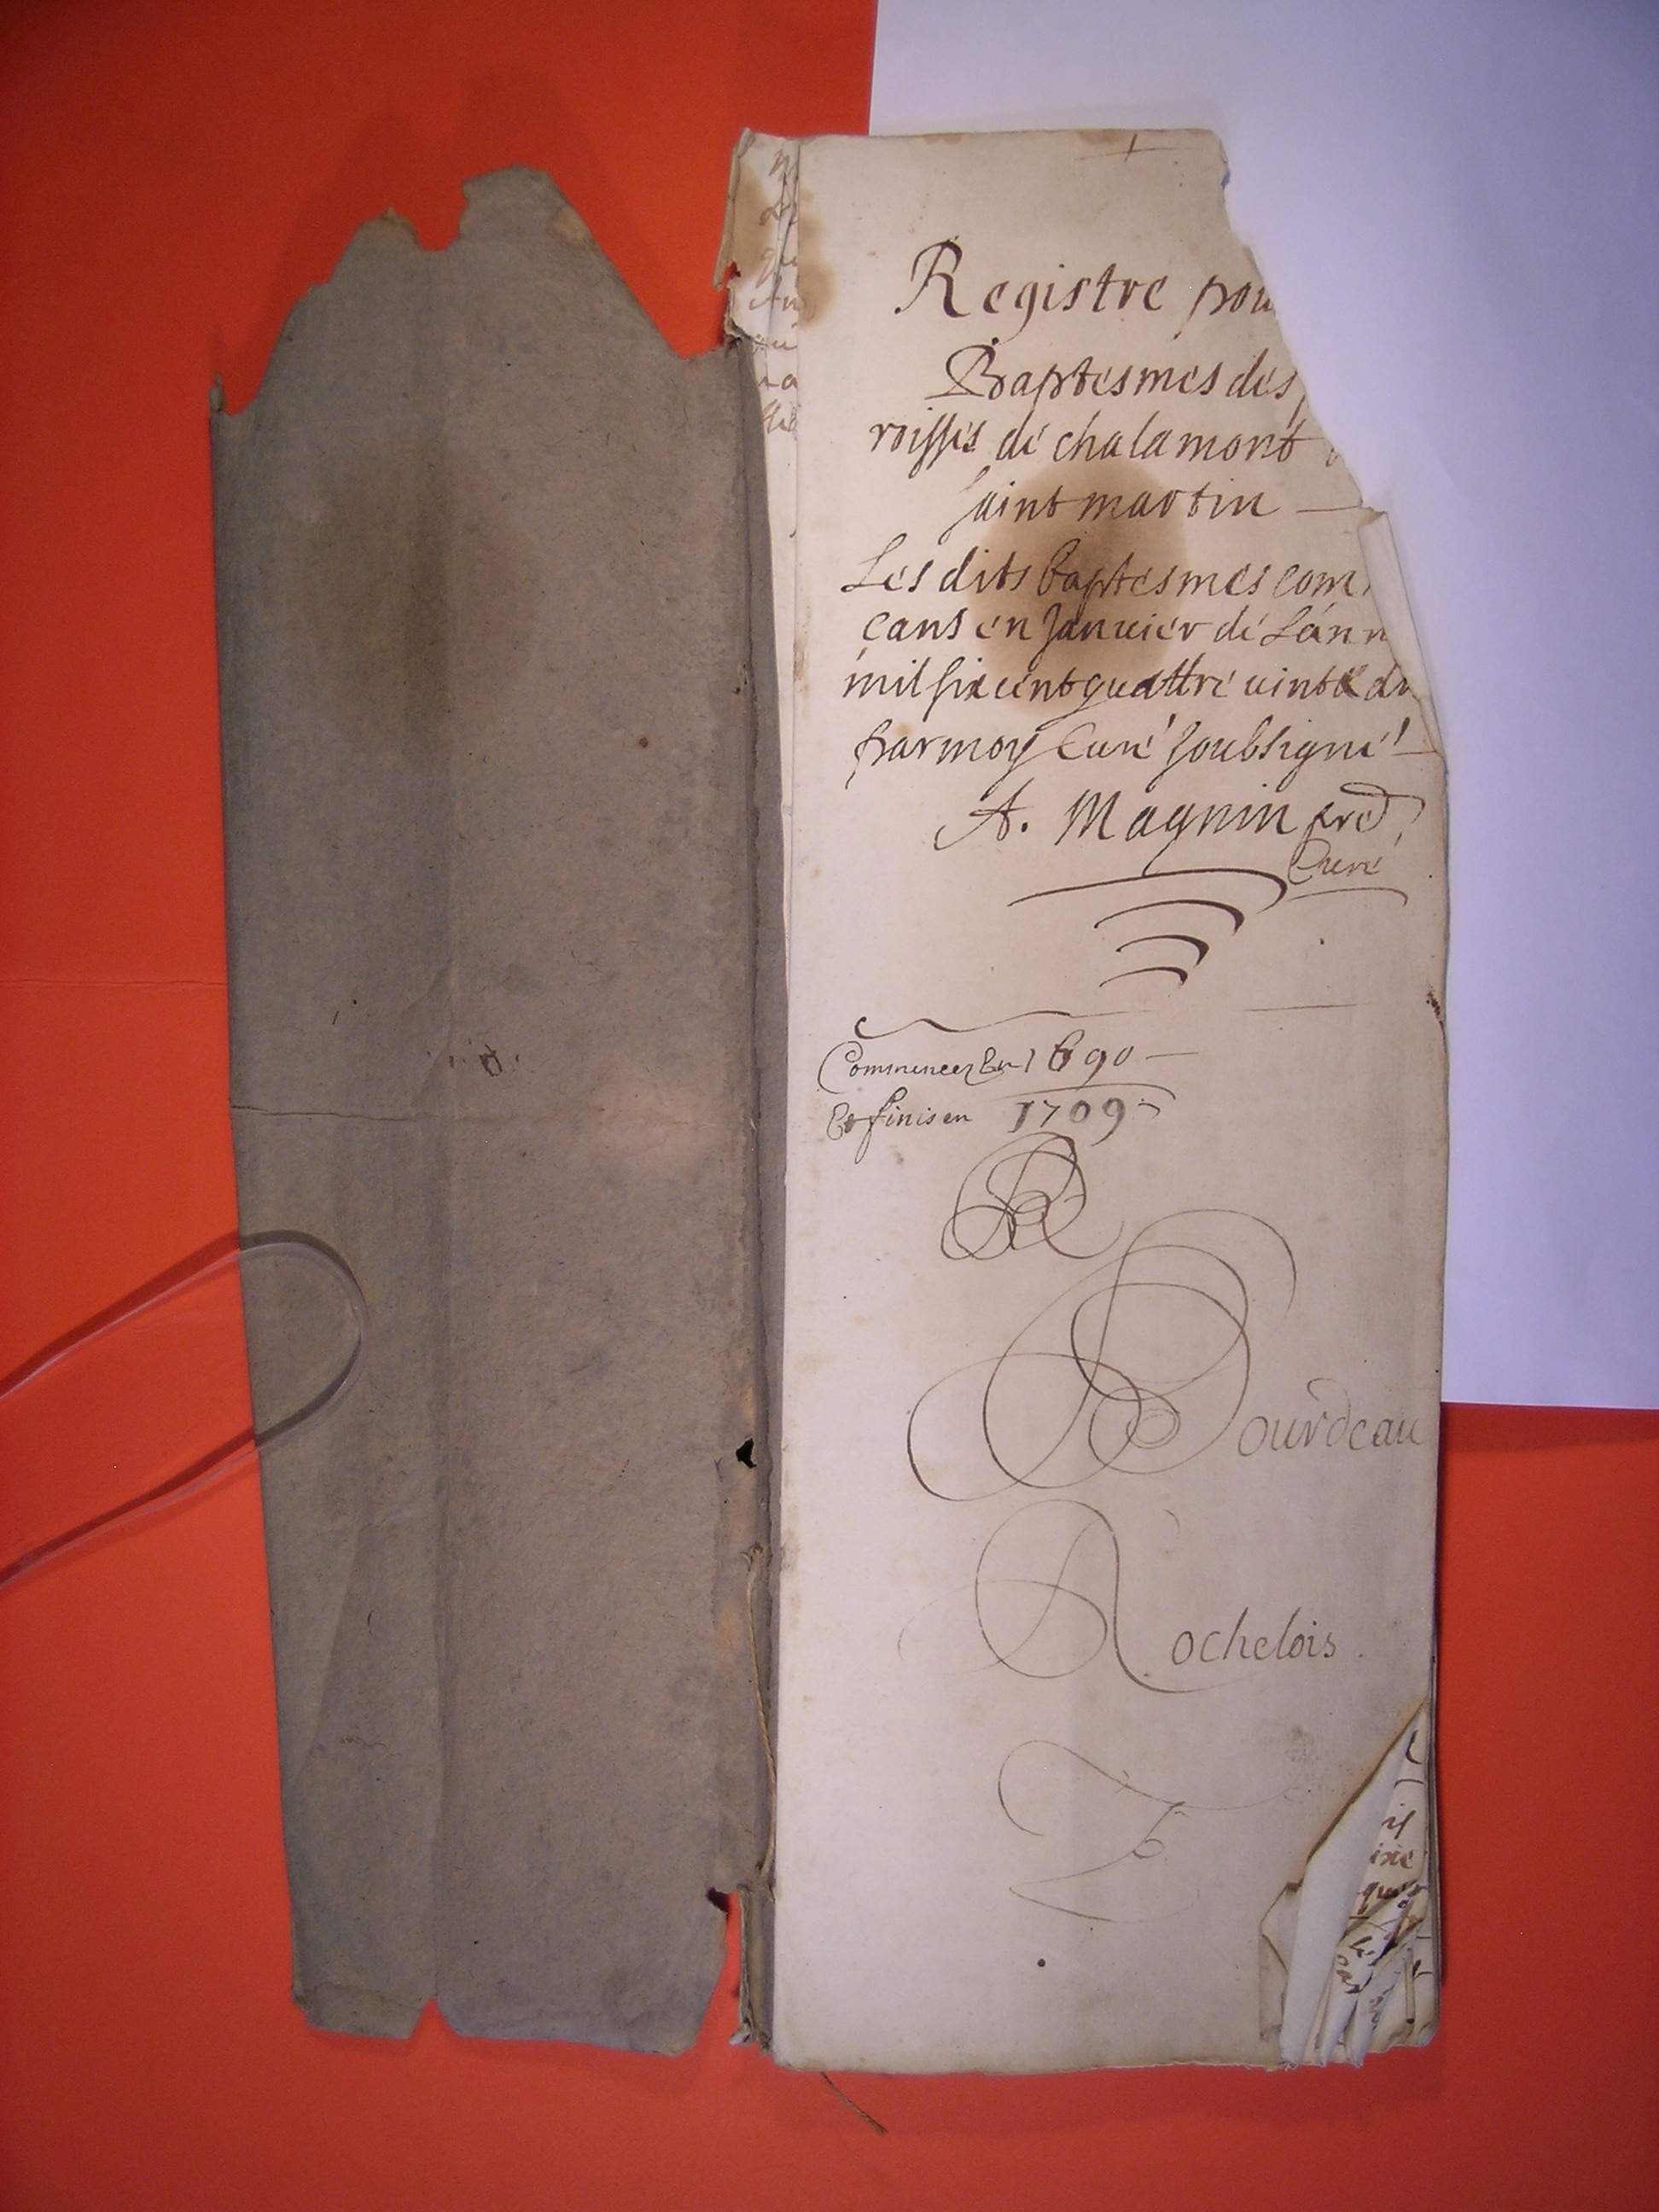 Registre pou
Baptesmes des p
roisses de chalamont
saint martin
Les dits baptesmes com
cans en Janvier de Lann
mil six cent quattre vint & di
par moy Curé soubsigné
A. Magnin pre
Curé
Commencez En 1690
Et finis en 1709
Bourdeau
Rochelois.